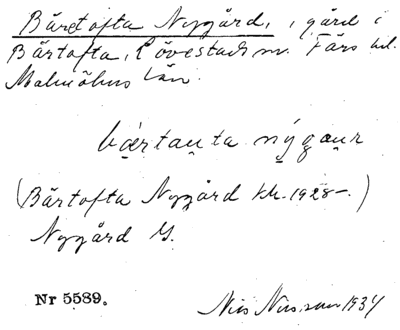 Bäretofta Nygård, gård i
Bärtofta, Lövestads sn. Färs hd.
Malmöhus län.
bærtau̯ta nýgau̯r
(Bärtofta Nygård kh. 1928-.)
Nygård G.
Nr 5589.
Nils Nilsson 1934